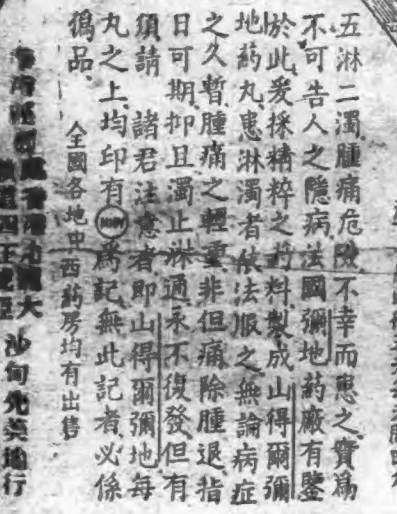 五淋二濁腫痛危險不幸而患之實爲
不可告人之隱病法國彌地药廠有鑒
於此爰採精粹之药料製成山得爾彌
地药丸患淋濁者依法服之無論病症
之久暫腫痛之輕重非但痛除腫退指
日可期抑且濁止淋通永不復發但有
須請 諸君注意者即山得爾彌地每
丸之上均印有MIDY爲記無此記者必係
僞品
全國各地中西药房均有出售